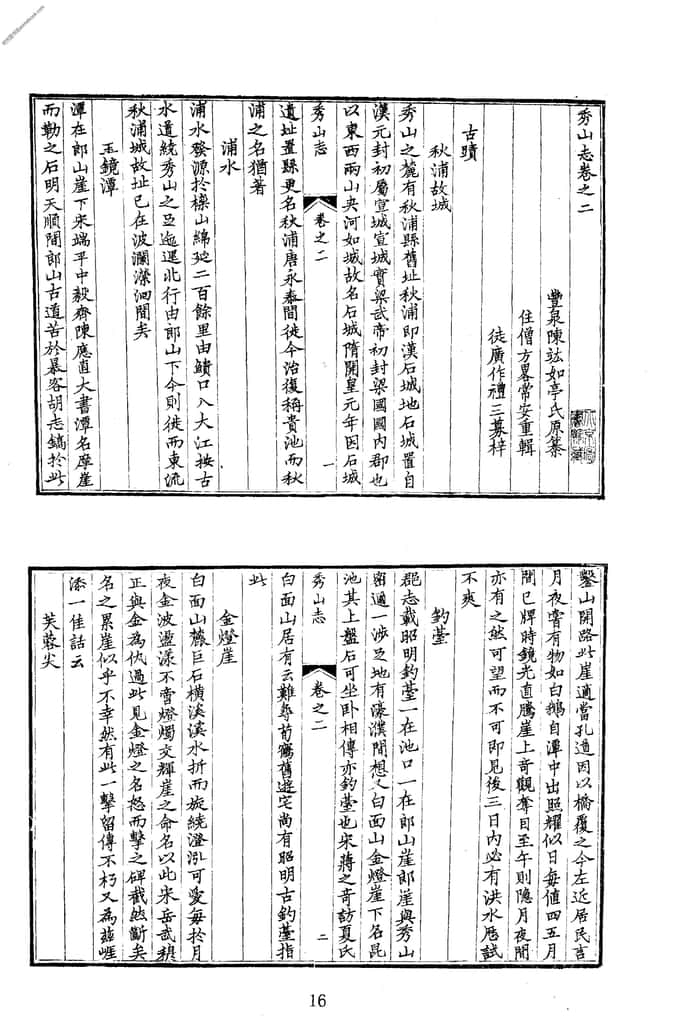 秀山志卷之二
豐泉陳䇄如亭氏原集
住僧方畧常安重輯
徒廣作禮三募梓
古蹟
秋浦故城
秀山之麓有秋浦縣舊址秋浦即漢石城地石城置自
漢元封初屬宣城宣城實梁武帝初封梁國國內郡也
以東西兩山夾河如城故名石城隋開皇元年因石城
秀山志 卷之二 一
遺址置縣更名秋浦唐永泰間徙今治復稱貴池而秋
浦之名猶著
浦水
浦水發源於櫟山綿延二百餘里由鱝口入大江按古
水道繞秀山之㠯迤邐北行由郎山下今則徙而東流
秋浦城故址已在波瀾瀠洄間矣
玉鏡潭
潭在郎山崖下宋端平中毅齊陳應直大書潭名摩崖
而勒之石明天順間郎山古道苦於暴客胡志鎬於此
鑿山開路此崖適當孔道因以橋覆之今左近居民言
月夜嘗有物如白鵝自潭中出照耀似日每值四五月
間巳牌時鏡光直騰崖上奇觀奪目至午則隱月夜間
亦有之然可望而不可即見後三日內必有洪水歷試
不爽
釣臺
郡志載昭明釣臺一在池口一在郎山崖郎崖與秀山
密邇一涉足地有濠濮間想又白面山金燈崖下名昆
池其上盤石可坐卧相傳亦釣臺也宋蔣之奇訪夏氏
秀山志 卷之二 二
白面山居有云難尋荀鶴舊遊宅尚有昭明古釣臺指
此
金燈崖
白面山麓巨石橫溪溪水折而旋繞澄泓可愛每於月
夜金波盪漾不啻燈燭交輝崖之命名以此宋岳武穆
正與金為仇過此見金燈之名怒而擊之碑截然斷矣
名之累崖似乎不幸然有此一擊留傳不朽又為茲崕
添一佳話云
芙蓉尖
16